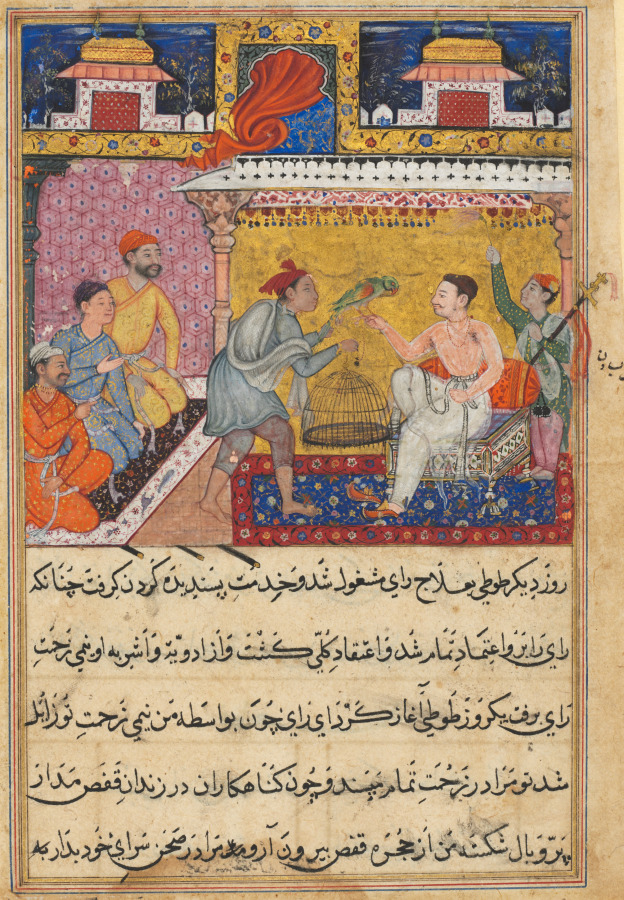 روز دیکر طوطی بعلاج رای مشغول شد و خدمت پسندیده کردن کرفت چنانکه
رای را برو اعتماد تمام شد و اعتقاد کلی کشت و از ادویه و اشربه او نیمی زحمت
رای برفت یکروز طوطی آغاز کرد ای رای چون بواسطه من نیمی زحمت تو زائل
شد تو مرا در زحمت تمام مپسند و چون کناهکاران در زندان قفص مدار
پر و بال شکسته من از حجره قفص بیرون آر و مرا در صحن سرای خود بدار که